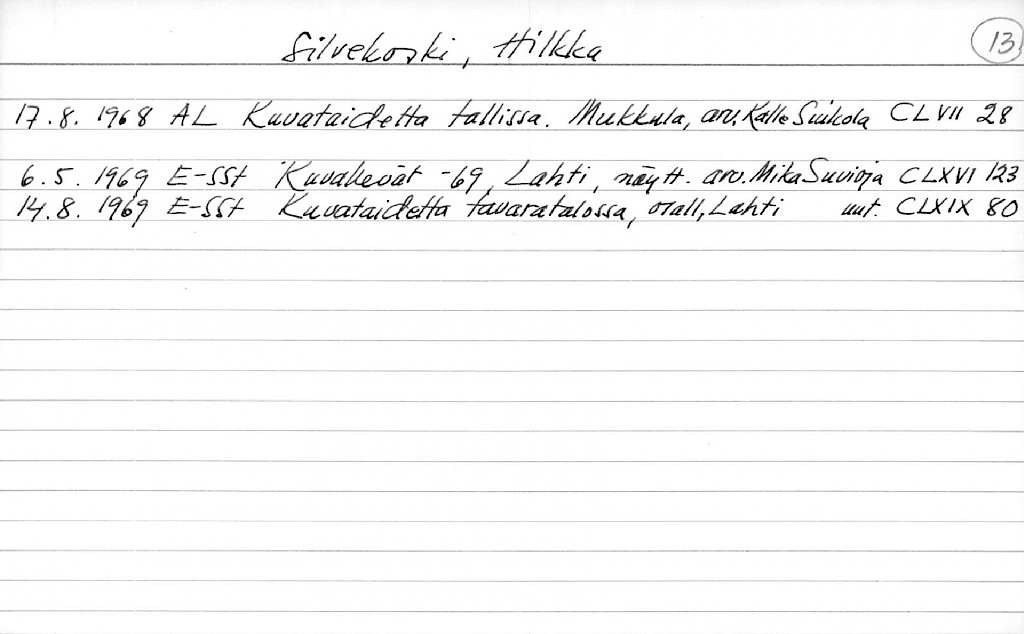 Silvekoski, Hilkka 13
17.8. 1968 AL Kuvataidetta tallissa. Mukkula, arv. Kalle Siukola CLVII 28
6.5. 1969 E-SSt Kuvakevät -69, Lahti, näytt. arv. Mika Suvioja CLXVI 123
14.8. 1969 E-SSt Kuvataidetta tavaratalossa, osall, Lahti uut. CLXIX 80